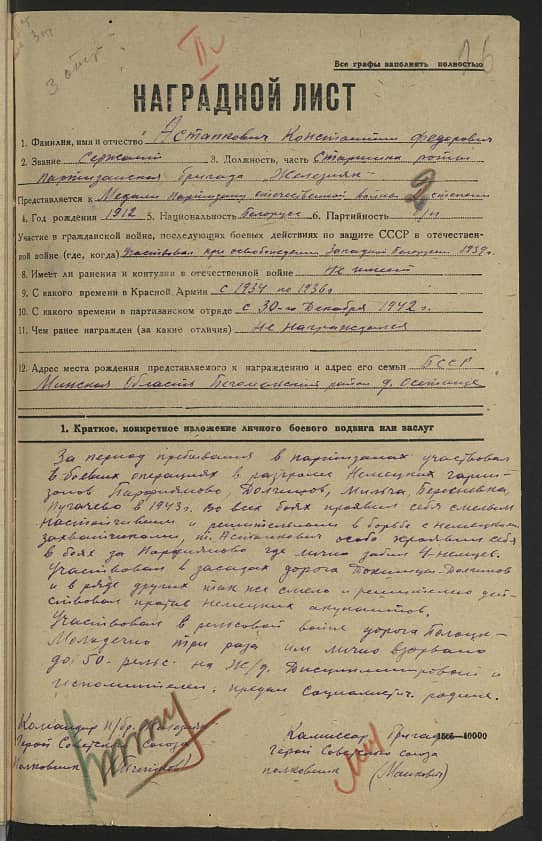 3 отр.
II
26
Все графы заполнять полностью
НАГРАДНОЙ ЛИСТ
1. Фамилия, имя и отчество Астапкович Константин Федорович
2. Звание Сержант 3. Должность, часть Старшина роты
партизанская бригада Железняк
Представляется к Медали партизану отечественной войны 2 степени
4. Год рождения 1912 5. Национальность белорус 6. Партийность б/п
Участие в гражданской войне, последующих боевых действиях по защите СССР в отечествен-
ной войне (где, когда) Участвовал при освобождении Западной Белорусии 1939г.
8. Имеет ли ранения и контузии в отечественной войне Не имеет
9. С какого времени в Красной Армии с 1934 по 1936г
10. С какого времени в партизанском отряде с 30-го Декабря 1942г.
11. Чем ранее награжден (за какие отличия) Не награждался
12. Адрес места рождения представляемого к награждению и адрес его семьи БССР
Минская Область Бегомльский район д. Осетище
1. Краткое, конкретное изложение личного боевого подвига или заслуг
За период пребывания в партизанах участвовал
в боевых операциях в разгроме Немецких гарни-
зонов Парфияново, Долгинов, Мильча, Бересневка,
Пугачево в 1943г. Во всех боях проявил себя смелым
настойчивым и решительным в борьбе с немецкими
захватчиками, т. Астапкович особо проявил себя
в боях за Парфияново где лично забил 4 немцев.
Участвовал в засадах дорога Докшицы-Долгинов
и в ряде других так же смело и решительно дей-
ствовал против немецких окупантов.
Участвовал в рельсовой войне дорога Полоцк-
Молодечно три раза им лично взорвано
до 50-рельс. на Ж/д. Дисциплинирован и
исполнителен, предан Социалистич. родине.
Командир п/бр.
Герой Советского Союза
Полковник
Комиссар Бригады
Герой Советского Союза
полковник (Манкович)
1565—10000